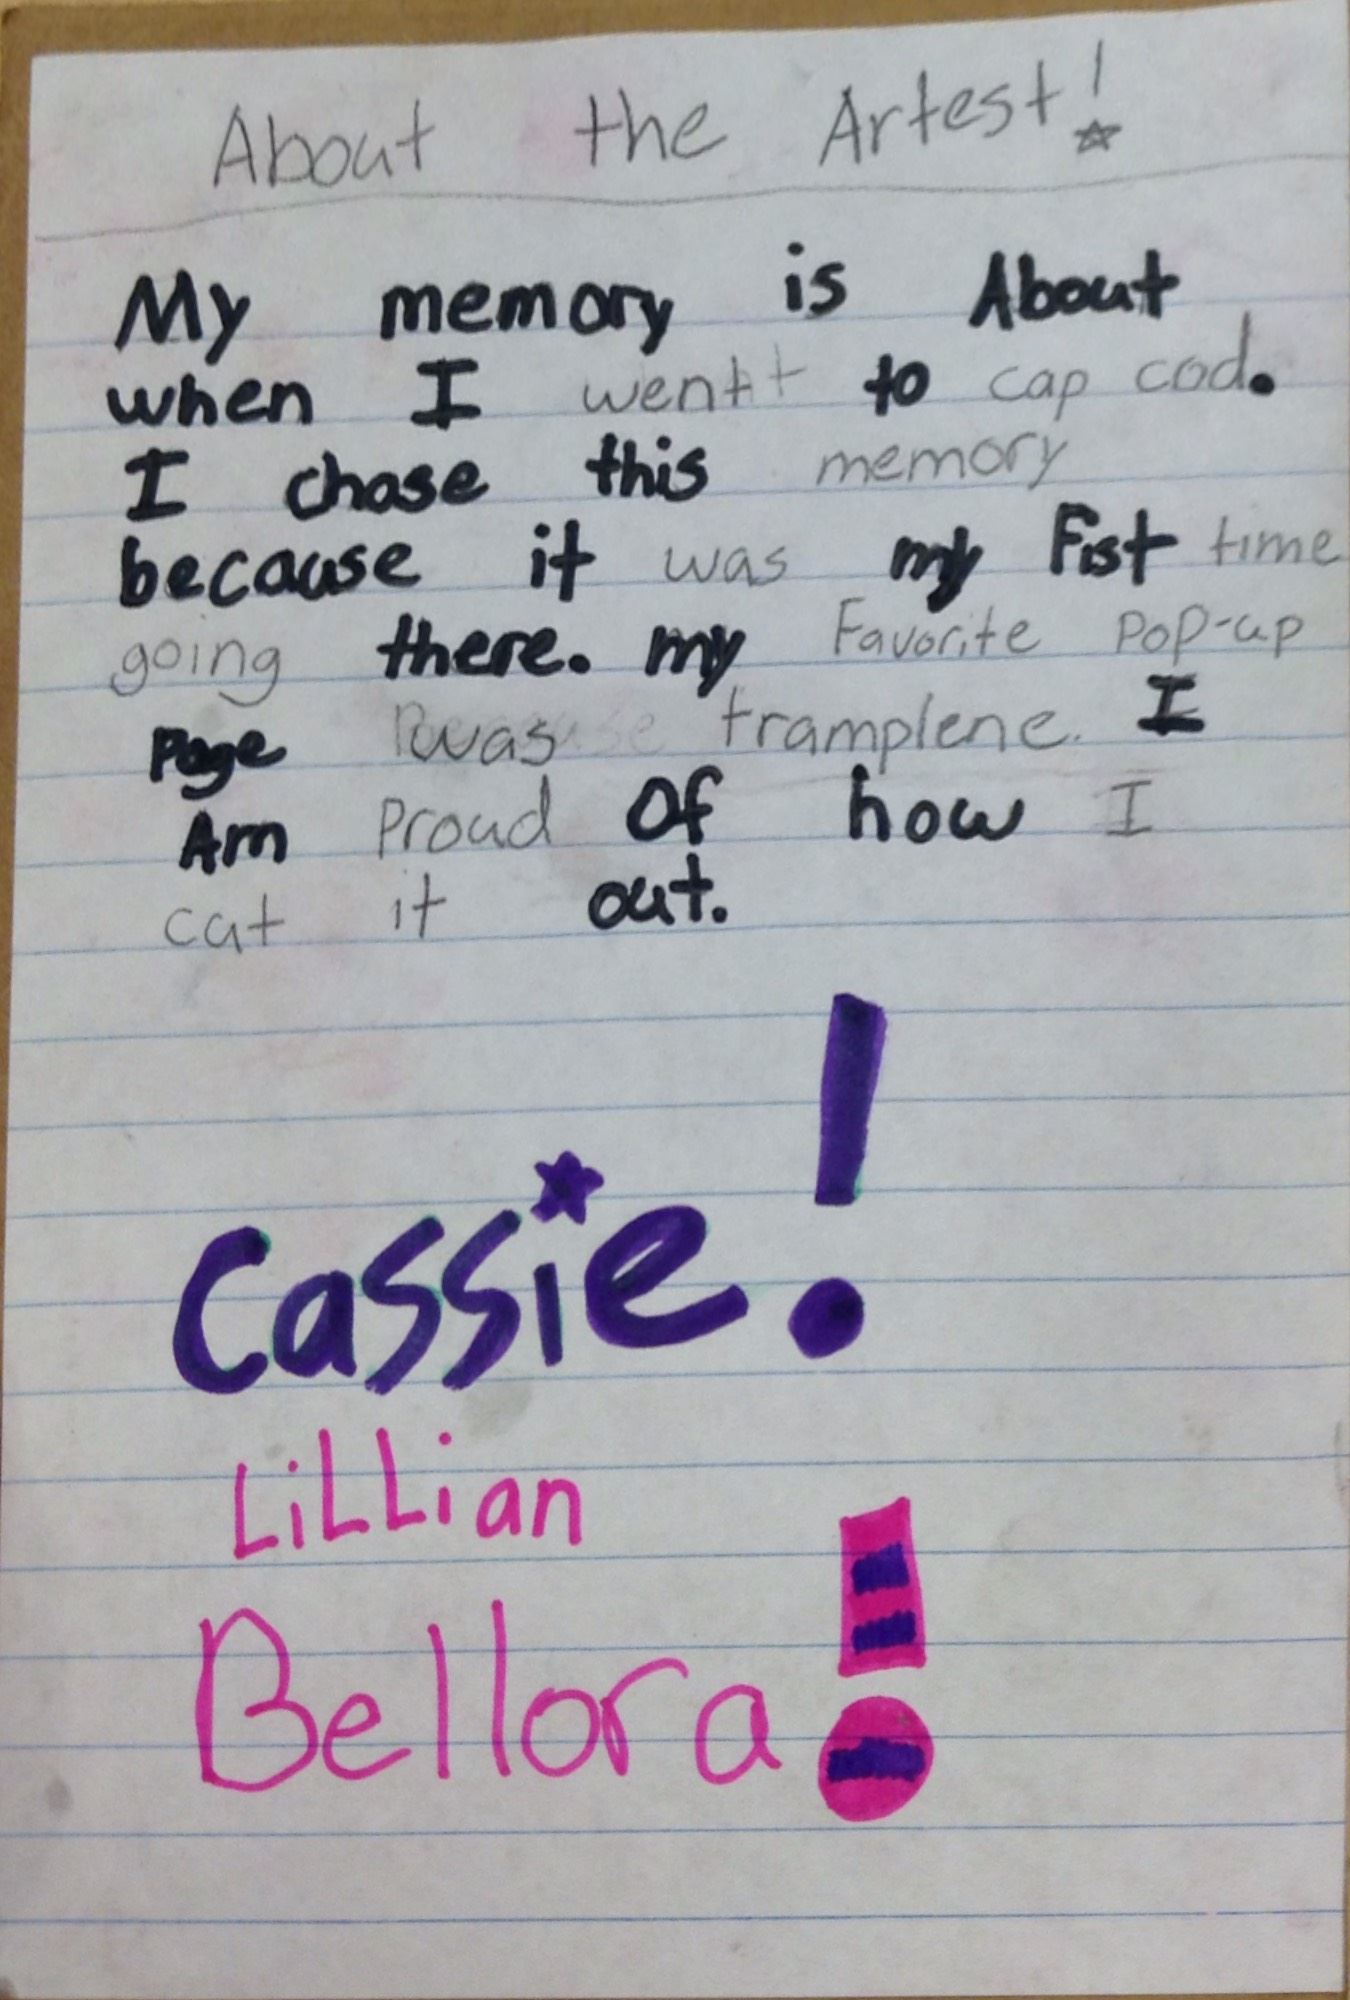 About the Artest!
My memory is About
when I wentt to cap cod.
I chose this memory
because it was my Fist time
going there. my Favorite POP-up
Page was tramplene. I
Am Proud Of how I
cut it out.
Cassie!
LiLLian
Bellora!